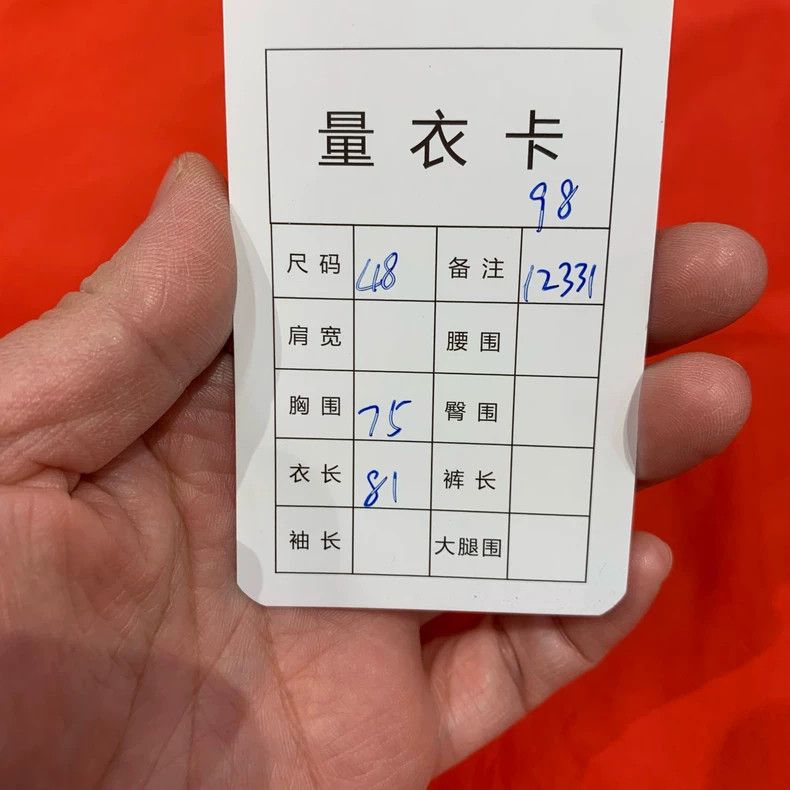 量衣卡
98
尺码 48 备注 12331
肩宽 腰围
胸围 75 臀围
衣长 81 裤长
袖长 大腿围